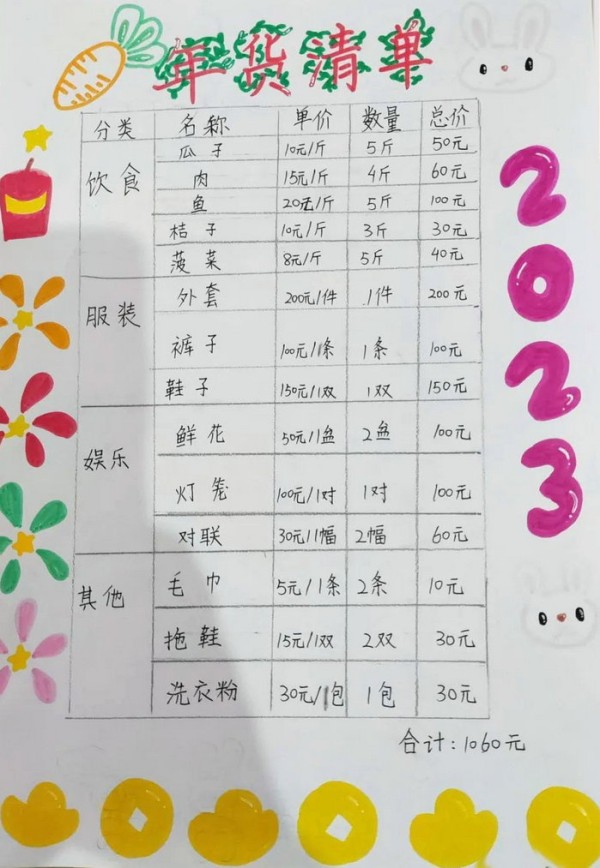 年货清单
分类 名称 单价 数量 总价
饮食 瓜子 10元/斤 5斤 50元
肉 15元/斤 4斤 60元
鱼 20元/斤 5斤 100元
桔子 10元/斤 3斤 30元
菠菜 8元/斤 5斤 40元
服装 外套 200元/件 1件 200元
裤子 100元/1条 1条 100元
鞋子 150元/1双 1双 150元
娱乐 鲜花 50元/1盆 2盆 100元
灯笼 100元/1对 1对 100元
对联 30元/1幅 2幅 60元
其他 毛巾 5元/1条 2条 10元
拖鞋 15元/1双 2双 30元
洗衣粉 30元/1包 1包 30元
合计:1060元
2023